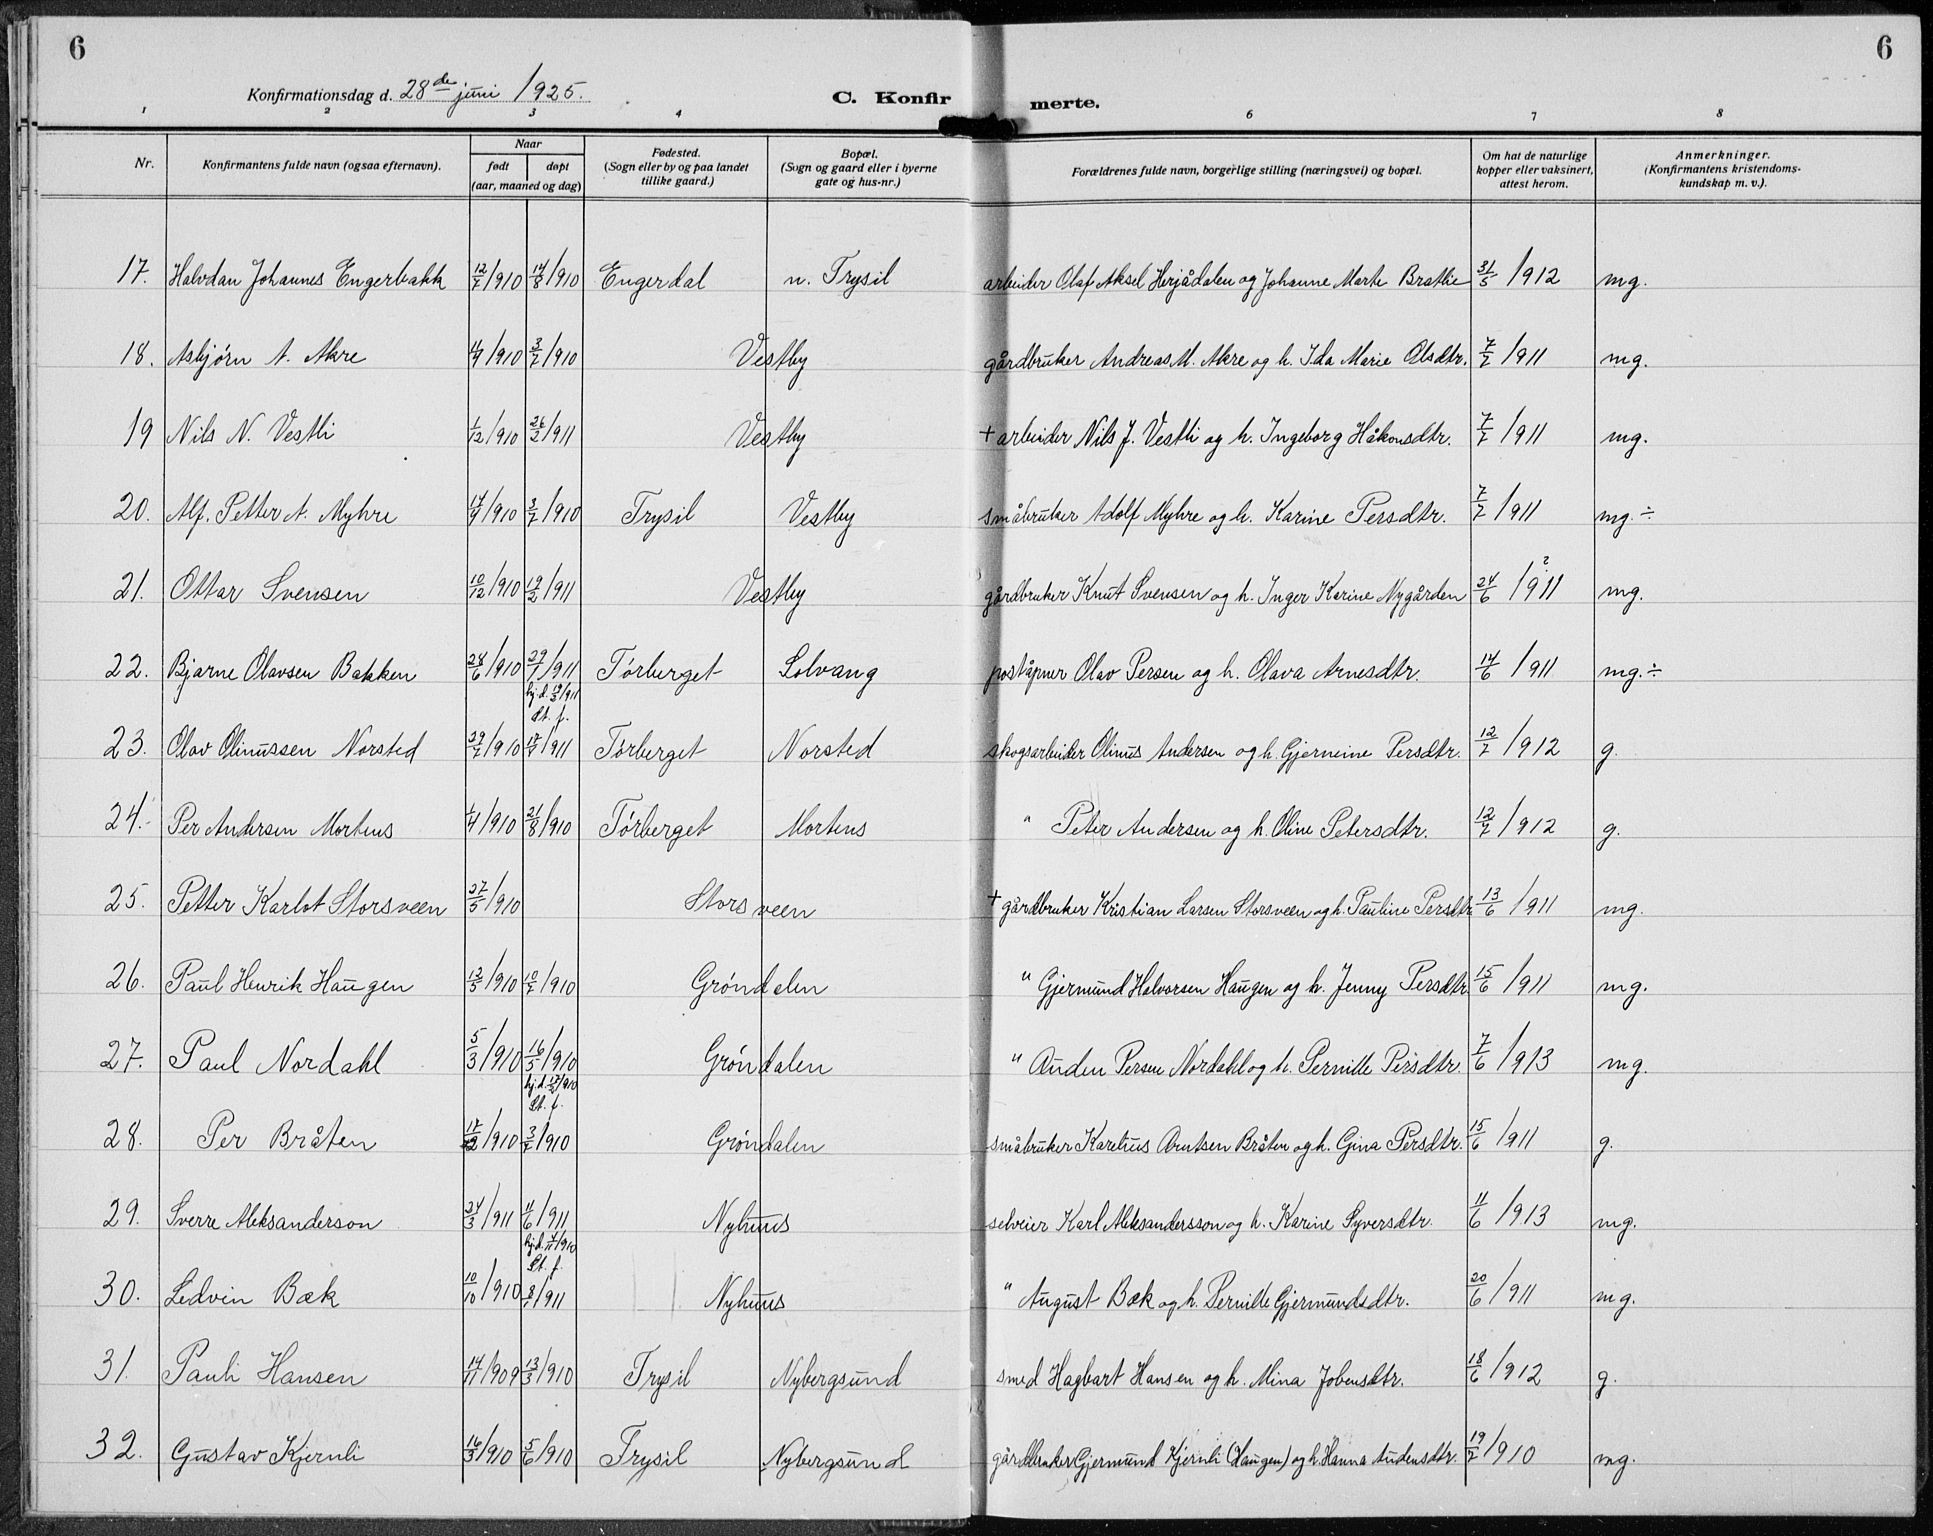 6
6
Konfirmationsdag d. 28de juni 1925.
C. Konfir merte.
1 2 3 4 6 7 8
Nr.
Konfirmantens fulde navn (ogsaa efternavn).
Naar
født døpt
(aar, maaned og dag)
Fødested.
(Sogn eller by og paa landet
tillike gaard.)
Bopæl.
(Sogn og gaard eller i byerne
gate og hus-nr.)
Forældrenes fulde navn, borgerlige stilling (næringsvei) og bopæl.
Om hat de naturlige
kopper eller vaksinert,
attest herom.
Anmerkninger.
(Konfirmantens kristendoms-
kundskap m. v.).
17. Halvdan Johannes Engerbakk 12/7 1910 14/8 1910 Engerdal n. Trysil arbeider Olaf Aksel Herjådalen og Johanne Marte Brattli 31/5 1912 mg.
18. Asbjørn A. Akre 4/4 1910 3/7 1910 Vestby gårdbruker Andreas M. Akre og h. Ida Marie Olsdtr. 7/7 1911 mg.
19 Nils N. Vestli 1/12 1910 26/2 1911 Vestby + arbeider Nils J. Vestli og h. Ingeborg Håkonsdtr. 7/7 1911 mg.
20. Alf. Petter A. Myhre 14/4 1910 3/7 1910 Trysil Vestby småbruker Adolf Myhre og h. Karine Persdtr. 7/7 1911 mg. ÷
21. Ottar Svensen 10/12 1910 19/2 1911 Vestby gårdbruker Knut Svensen og h. Inger Karine Nygården 24/6 1911 ? mg.
22. Bjarne Olavsen Bakken 28/6 1910 29/1 1911 Tørberget Solvang poståpner Olav Persen og h. Olava Arnesdtr. 14/6 1911 mg. ÷
hj.d. 1911
St. f.
23. Olav Olinussen Norsted 29/7 1910 1911 Tørberget Norsted skogsarbeider Olinus Andersen og h. Gjerneine Persdtr. 12/7 1912 g.
24. Per Andersen Mortens 1/4 1910 21/8 1910 Tørberget Mortens " Peter Andersen og h. Oline Petersdtr. 12/7 1912 g.
25. Petter Karlot Storsveen 27/5 1910 Storsveen + gårdbruker Kristian Larsen Storsveen og h. Pauline Persdtr 13/6 1911 mg.
26. Paul Henrik Haugen 13/5 1910 10/7 1910 Grøndalen " Gjermund Halvorsen Haugen og h. Jenny Persdtr 15/6 1911 mg.
27. Paul Nordahl 5/3 1910 16/5 1910 Grøndalen " Auden Persen Nordahl og h. Pernille Persdtr. 7/6 1913 mg.
hj.d. 1910
St. f.
28. Per Bråten 1910 3/7 1910 Grøndalen småbruker Karelius Arntsen Bråten og h. Gina Persdtr. 15/6 1911 g.
29. Sverre Aleksanderson 24/3 1911 4/6 1911 Nyhuus selveier Karl Aleksandersson og h. Karine Syversdtr. 11/6 1913 mg.
hj.d. 1910
St. f.
30. Ledvin Bæk 10/10 1910 8/1 1911 Nyhuus " August Bæk og h. Pernille Gjermundsdtr. 20/6 1911 mg.
31. Pauli Hansen 14/11 1909 13/3 1910 Trysil Nybergsund smed Hagbart Hansen og h. Mina Jobensdtr. 18/6 1912 g.
32. Gustav Kjernli 16/3 1910 5/6 1910 Trysil Nybergsund gårdbruker Gjermund Kjernli (Haugen) og h. Hanna Audensdtr. 19/7 1910 mg.